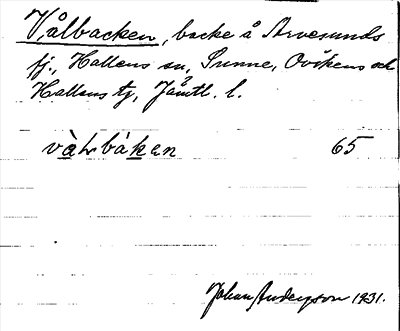 Vålbacken, backe å Arvesunds
fj., Hallens sn, Sunne, Ovikens och
Hallens tg, Jämtl. l.
vàLbákan 65
Johan Anderzson 1931.